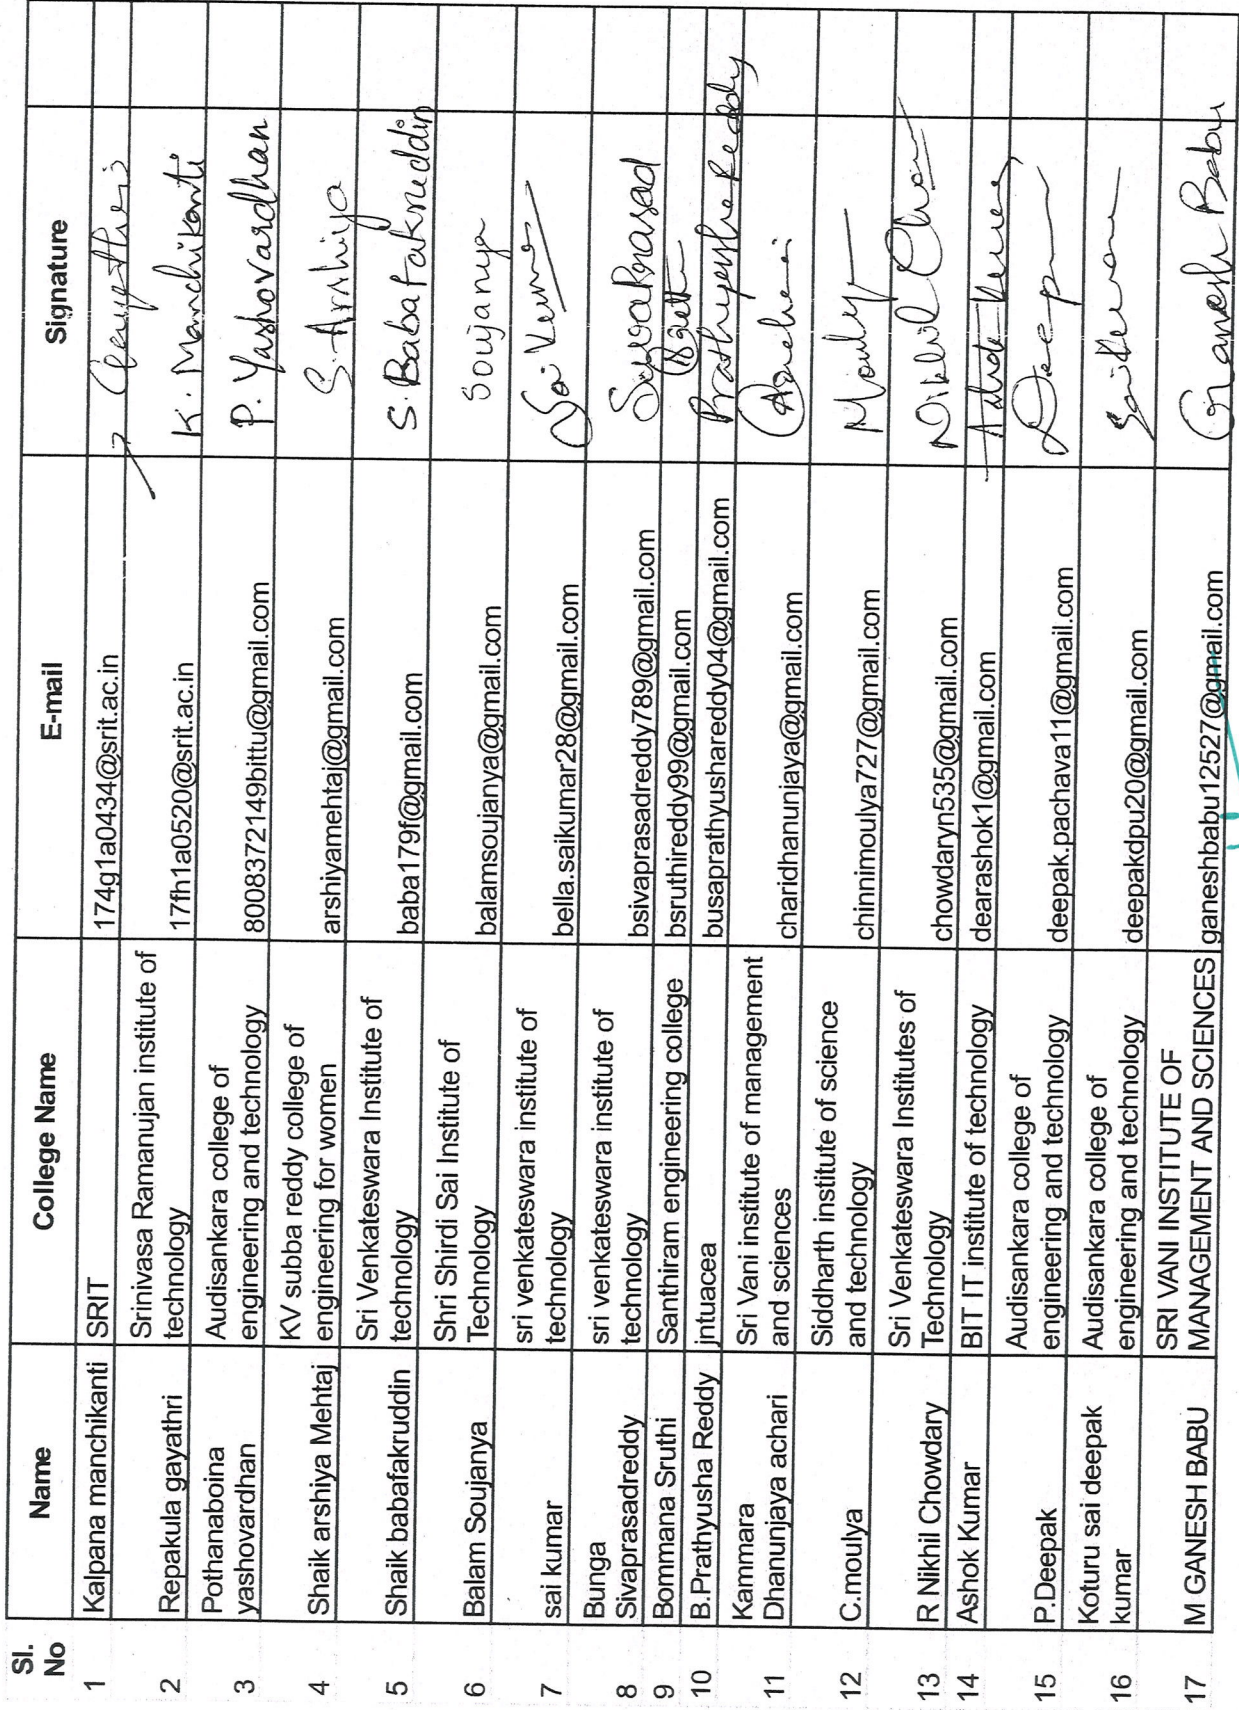 Sl. No Name College Name E-mail Signature
1 Kalpana manchikanti SRIT 174g1a0434@srit.ac.in
2 Repakula gayathri Srinivasa Ramanujan institute of
technology 17fh1a0520@srit.ac.in K. Manchikanti
3 Pothanaboina
yashovardhan Audisankara college of
engineering and technology 8008372149bittu@gmail.com P. Yashovardhan
4 Shaik arshiya Mehtaj KV subba reddy college of
engineering for women arshiyamehtaj@gmail.com S. Arshiya
5 Shaik babafakruddin Sri Venkateswara Institute of
technology baba179f@gmail.com S. Babafakruddin
6 Balam Soujanya Shri Shirdi Sai Institute of
Technology balamsoujanya@gmail.com Soujanya
7 sai kumar sri venkateswara institute of
technology bella.saikumar28@gmail.com Sai Kumar
8 Bunga
Sivaprasadreddy sri venkateswara institute of
technology bsivaprasadreddy789@gmail.com Sivaprasad
9 Bommana Sruthi Santhiram engineering college bsruthireddy99@gmail.com
10 B.Prathyusha Reddy jntuacea busaprathyushareddy04@gmail.com Prathyusha Reddy
11 Kammara
Dhanunjaya achari Sri Vani institute of management
and sciences charidhanunjaya@gmail.com
12 C.moulya Siddharth institute of science
and technology chinnimoulya727@gmail.com Mouly
13 R Nikhil Chowdary Sri Venkateswara Institutes of
Technology chowdaryn535@gmail.com Nikhil Chow
14 Ashok Kumar BIT IT institute of technology dearashok1@gmail.com
15 P.Deepak Audisankara college of
engineering and technology deepak.pachava11@gmail.com Deep
16 Koturu sai deepak
kumar Audisankara college of
engineering and technology deepakdpu20@gmail.com
17 M GANESH BABU SRI VANI INSTITUTE OF
MANAGEMENT AND SCIENCES ganeshbabu12527@gmail.com Ganesh Babu